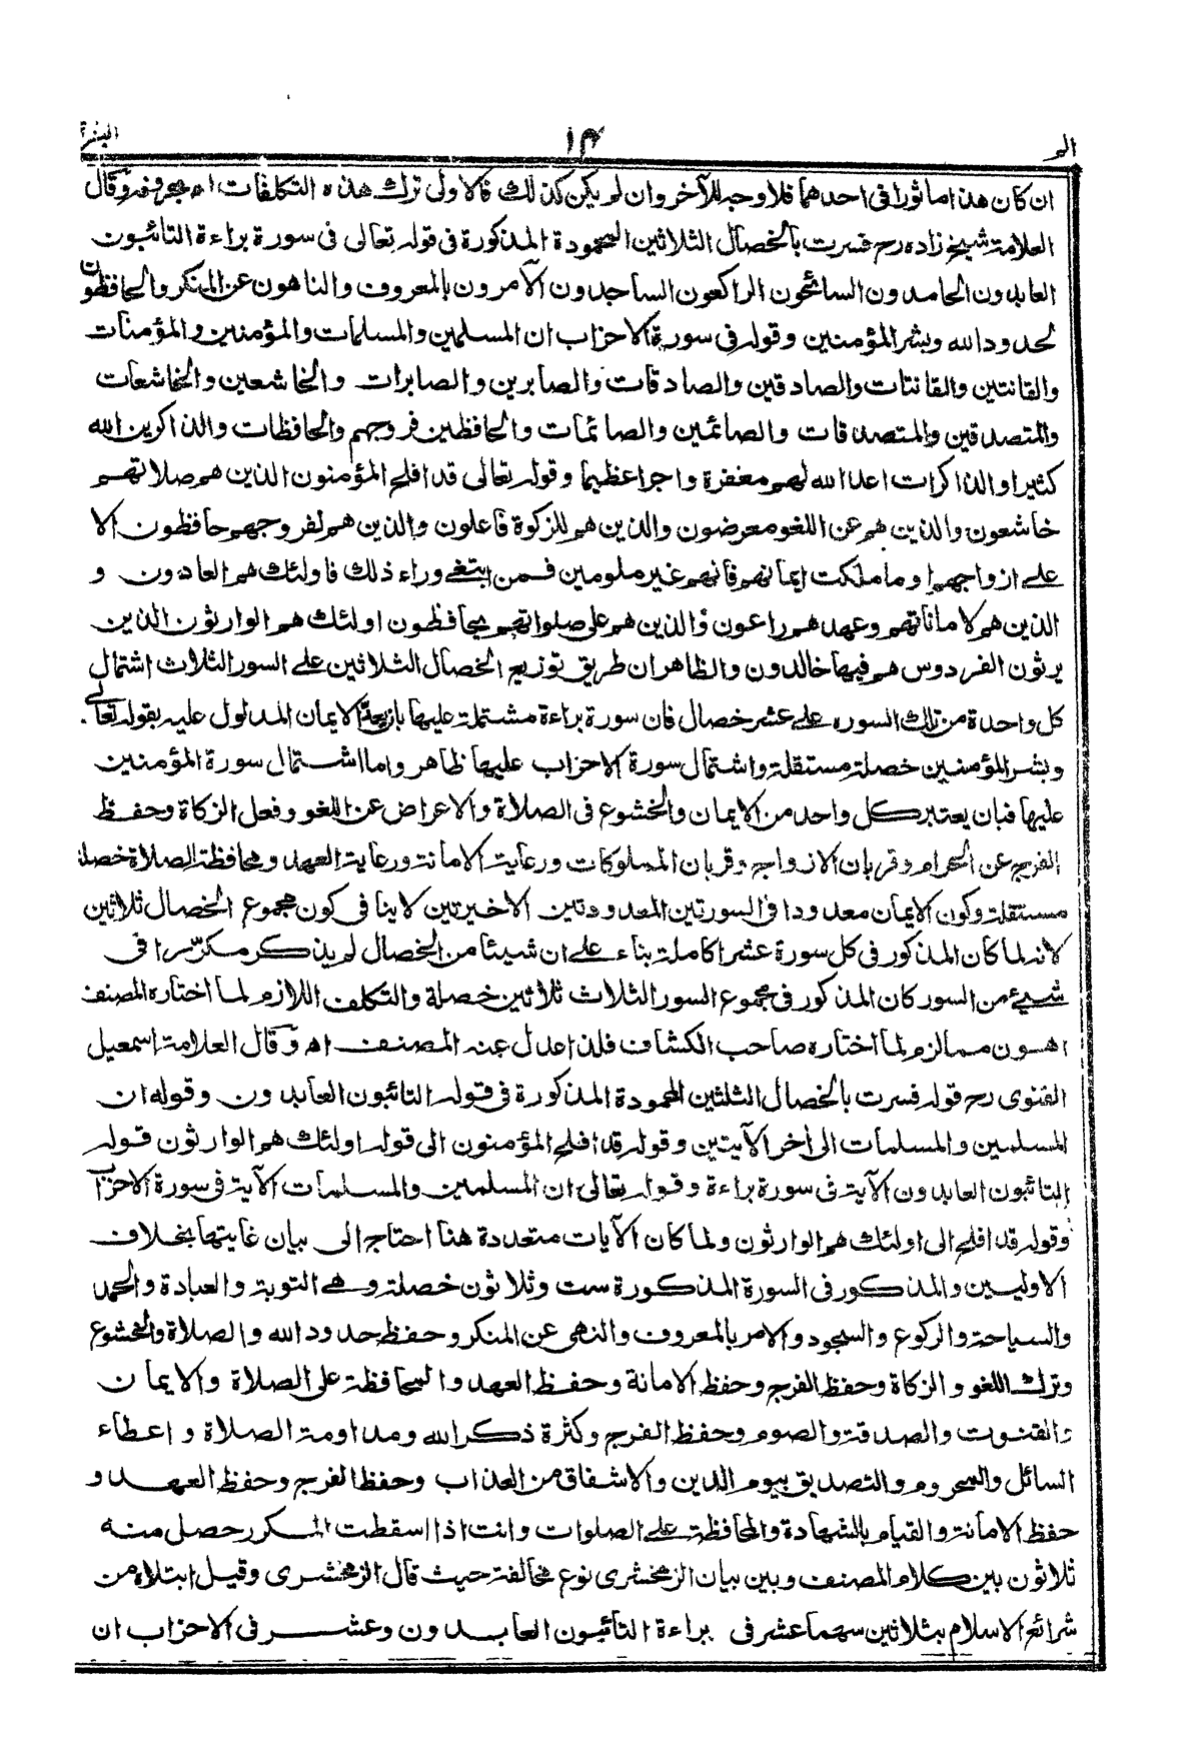 الم
١٣
البقرة
ان كان هذا ماثورا فى احدهما فلا وجه للآخر وان لم يكن كذلك فالاولى ترك هذه التكلفات اه وقال
العلامة شيخ زاده رح فسرت بالخصال الثلاثين المحمودة المذكورة فى قوله تعالى فى سورة براءة التائبون
العابدون الحامدون السائحون الراكعون الساجدون الآمرون بالمعروف والناهون عن المنكر والحافظون
لحدود الله وبشر المؤمنين وقوله فى سورة الاحزاب ان المسلمين والمسلمات والمؤمنين والمؤمنات
والقانتين والقانتات والصادقين والصادقات والصابرين والصابرات والخاشعين والخاشعات
والمتصدقين والمتصدقات والصائمين والصائمات والحافظين فروجهم والحافظات والذاكرين الله
كثيرا والذاكرات اعد الله لهم مغفرة واجرا عظيما وقوله تعالى قد افلح المؤمنون الذين هم صلاتهم
خاشعون والذين هم عن اللغو معرضون والذين هم للزكوة فاعلون والذين هم لفروجهم حافظون الا
على ازواجهم او ما ملكت ايمانهم فانهم غير ملومين فمن ابتغى وراء ذلك فاولئك هم العادون و
الذين هم لاماناتهم وعهدهم راعون والذين هم على صلواتهم يحافظون اولئك هم الوارثون الذين
يرثون الفردوس هم فيها خالدون والظاهر ان طريق توزيع الخصال الثلاثين على السور الثلاث اشتمال
كل واحدة من تلك السوره على عشر خصال فان سورة براءة مشتملة عليها بان يعد الايمان المدلول عليه بقوله تعالى
وبشر المؤمنين خصلة مستقلة واشتمال سورة الاحزاب عليها ظاهر واما اشتمال سورة المؤمنين
عليها فبان يعتبر كل واحد من الايمان والخشوع فى الصلاة والاعراض عن اللغو وفعل الزكاة وحفظ
الفرج عن الحرام وقربان الازواج وقربان المملوكات ورعاية الامانة ورعاية العهد ومحافظة الصلاة خصلة
مستقلة وكون الايمان معدودا فى السورتين المعدودتين الاخيرتين لاينافى كون مجموع الخصال ثلاثين
لانه لما كان المذكور فى كل سورة عشرا كاملة بناء على ان شيئا من الخصال لم يذكر مكررا فى
شيئ من السور كان المذكور فى مجموع السور الثلاث ثلاثين خصلة والتكلف اللازم لما اختاره المصنف
اهون مما لزم لما اختاره صاحب الكشاف فلذا عدل عنه المصنف اه وقال العلامة اسمعيل
القنوى رح قوله فسرت بالخصال الثلثين المحمودة المذكورة فى قوله التائبون العابدون وقوله ان
المسلمين والمسلمات الى أخر الآيتين وقوله قد افلح المؤمنون الى قوله اولئك هم الوارثون قوله
التائبون العابدون الآية فى سورة براءة وقوله تعالى ان المسلمين والمسلمات الآية فى سورة الاحزاب
وقوله قد افلح الى اولئك هم الوارثون ولما كان الآيات متعددة هنا احتاج الى بيان غايتها بخلاف
الاوليين والمذكور فى السورة المذكورة ست وثلاثون خصلة وهى التوبة والعبادة والحمد
والسياحة والركوع والسجود والامر بالمعروف والنهى عن المنكر وحفظ حدود الله والصلاة والخشوع
وترك اللغو والزكاة وحفظ الفرج وحفظ الامانة وحفظ العهد والمحافظة على الصلاة والايمان
والقنوت والصدقة والصوم وحفظ الفرج وكثرة ذكر الله ومداومة الصلاة واعطاء
السائل والمحروم والتصديق بيوم الدين والاشفاق من العذاب وحفظ الفرج وحفظ العهد و
حفظ الامانة والقيام بالشهادة والمحافظة على الصلوات وانت اذا اسقطت المكرر حصل منه
ثلاثون بين كلام المصنف وبين بيان الزمخشرى نوع مخالفة حيث قال الزمخشرى وقيل ابتلاه من
شرائع الاسلام بثلاثين سهما عشر فى براءة التائبون العابدون وعشر فى الاحزاب ان